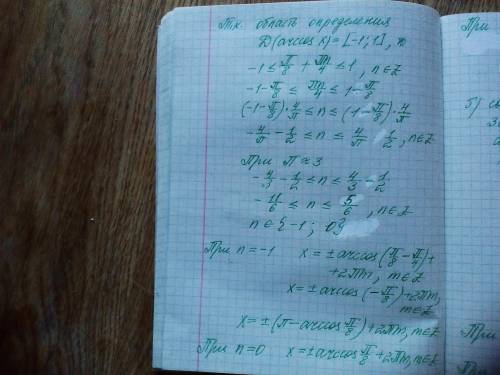 Т.к. область определения
D(arccos x) = [-1; 1],
-1 ≤ π/8 + πn/4 ≤ 1, n∈Z
-1 - π/8 ≤ πn/4 ≤ 1 - π/8
(-1 - π/8) · 4/π ≤ n ≤ (1 - π/8) · 4/π
-4/π - 1/2 ≤ n ≤ 4/π 1/2, n∈Z
При π ≈ 3
-4/3 - 1/2 ≤ n ≤ 4/3 - 1/2
-11/6 ≤ n ≤ 5/6, n∈Z
n∈{-1; 0}
При n = -1 x = ± arccos(π/8 - π/4) +
+ 2πm, m∈Z
x = ± arccos(-π/8) + 2πm,
m∈Z
x = ± (π - arccos π/8) + 2πm, m∈Z
При n = 0 x = ± arccos π/8 + 2πm, m∈Z
При
5)